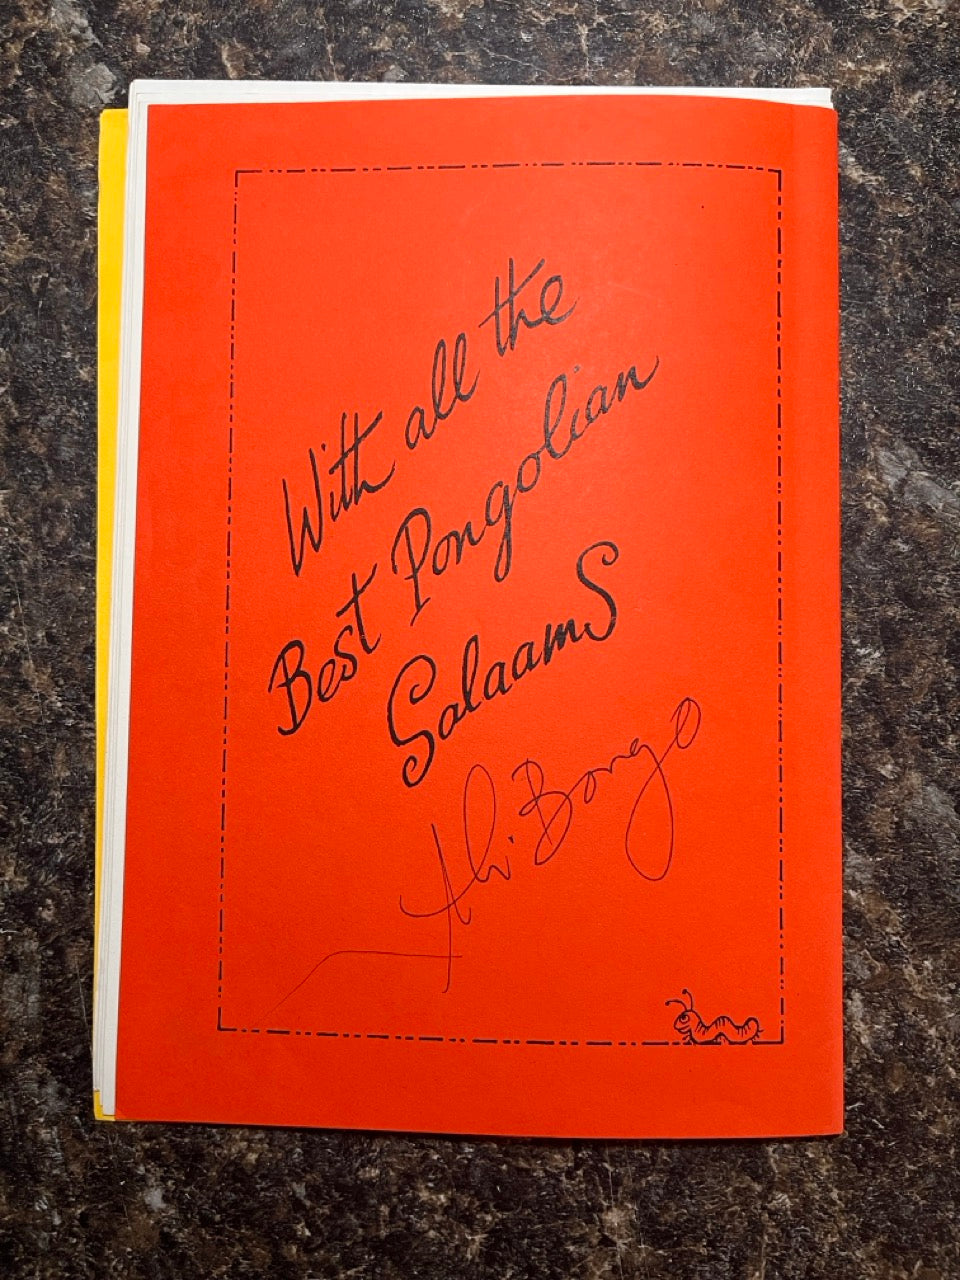 With all the
Best Pongolian
SalaamS
Ali Bongo